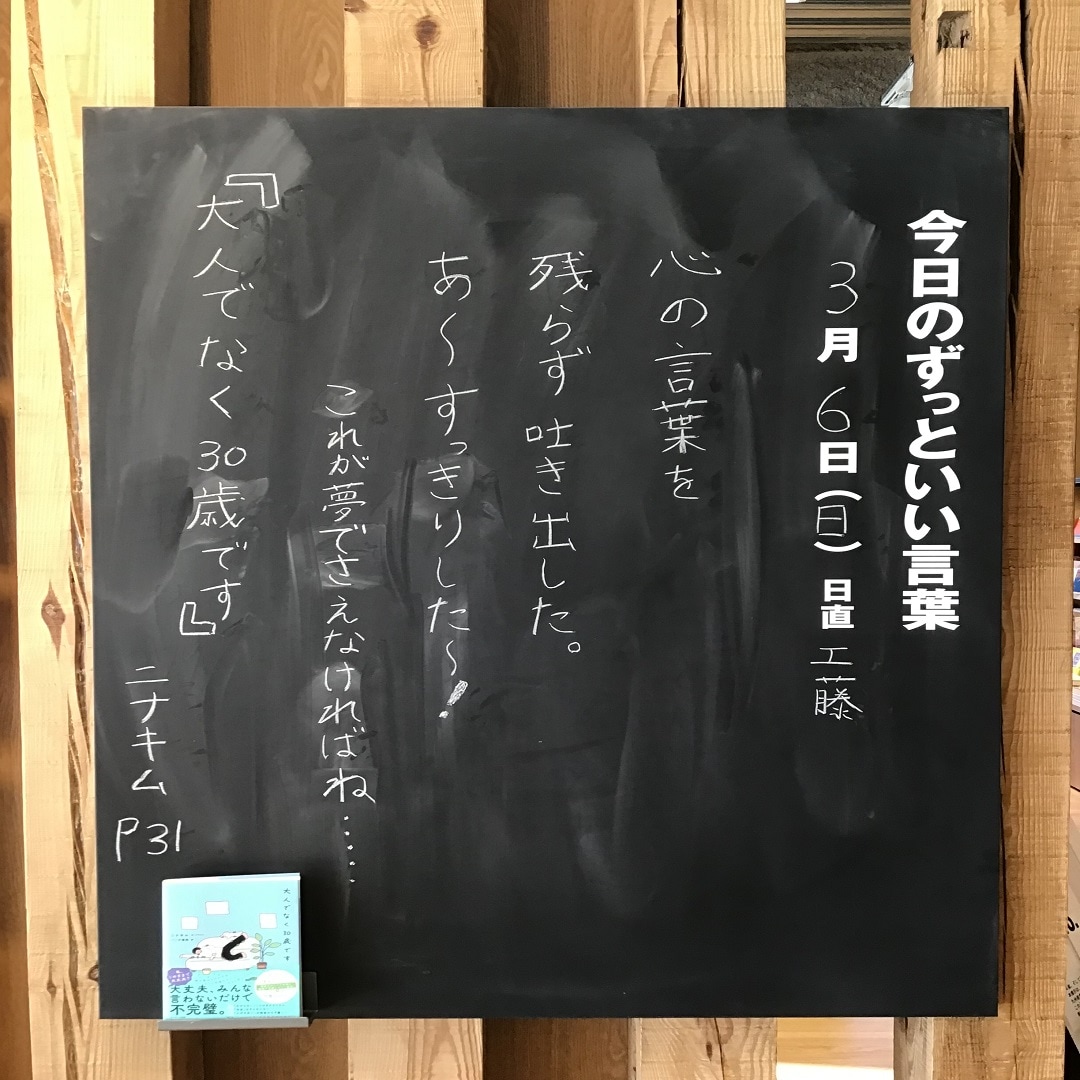 今日のずっといい言葉
3月6日(日) 日直 工藤
心の言葉を
残らず吐き出した。
あ〜すっきりした〜!
これが夢でさえなければね……
『大人でなく30歳です』
ニナキム
P31
大人でなく30歳です
大丈夫、みんな
言わないだけで
不完璧。